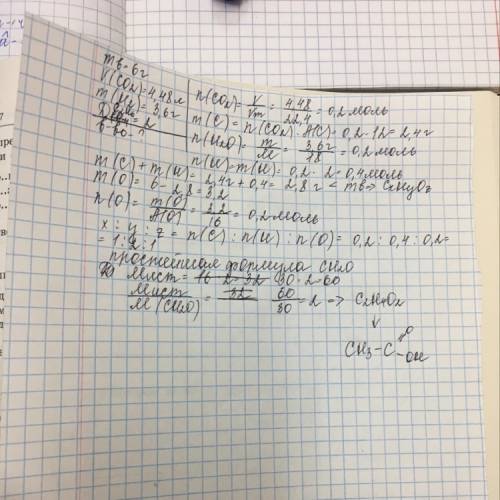 m в-6г
V(CO₂)=4,48л
m(H₂O)=3,6г
=2
в-во-?
n(CO₂)=V/Vm=4,48/22,4=0,2моль
m(C)=n(CO₂)·A(C)=0,2·12=2,4г
n(H₂O)=m/M=3,6г/18=0,2моль
n(H)=m(H)=0,2·2=0,4моль
m(C)+m(H)=2,4г+0,4=2,8г<mв=>CxHyOz
m(O)=6-2,8=3,2
n(O)=m(O)/A(O)=3,2/16=0,2моль
x:y:z=n(C):n(H):n(O)=0,2:0,4:0,2=
=1:2:1
простейшая формула CH₂O
Mист=16·2=32 30·2=60
Mист/M(CH₂O)=32 60/30=2=>C₂H₄O₂
↓
O
CH₃-C-OH